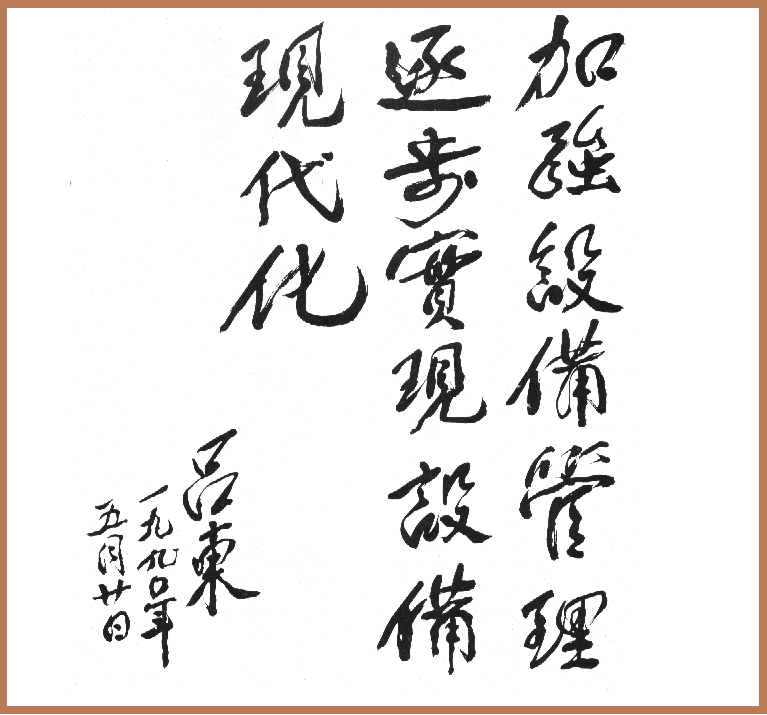 加強設備管理
逐步實現設備
現代化
呂東
一九九〇年
五月廿日